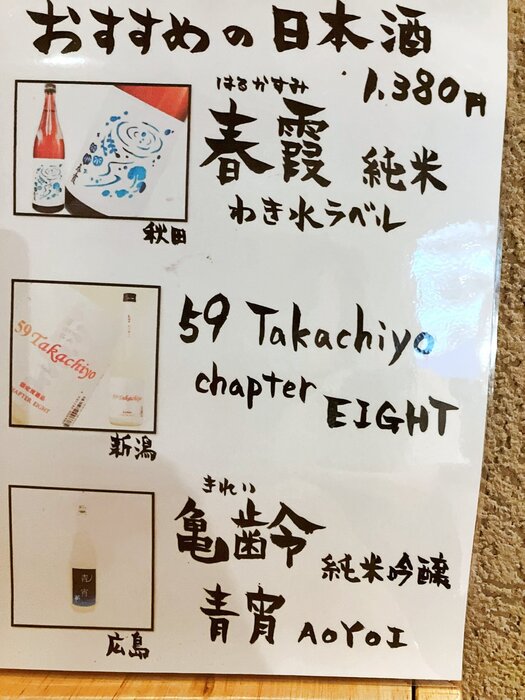 おすすめの日本酒
1,380円
はるかすみ
春霞 純米
わき水ラベル
秋田
59 Takachiyo
chapter EIGHT
59 Takachiyo
CHAPTER EIGHT
新潟
きれい
亀齢 純米吟醸
青宵 AOYOI
青宵
広島